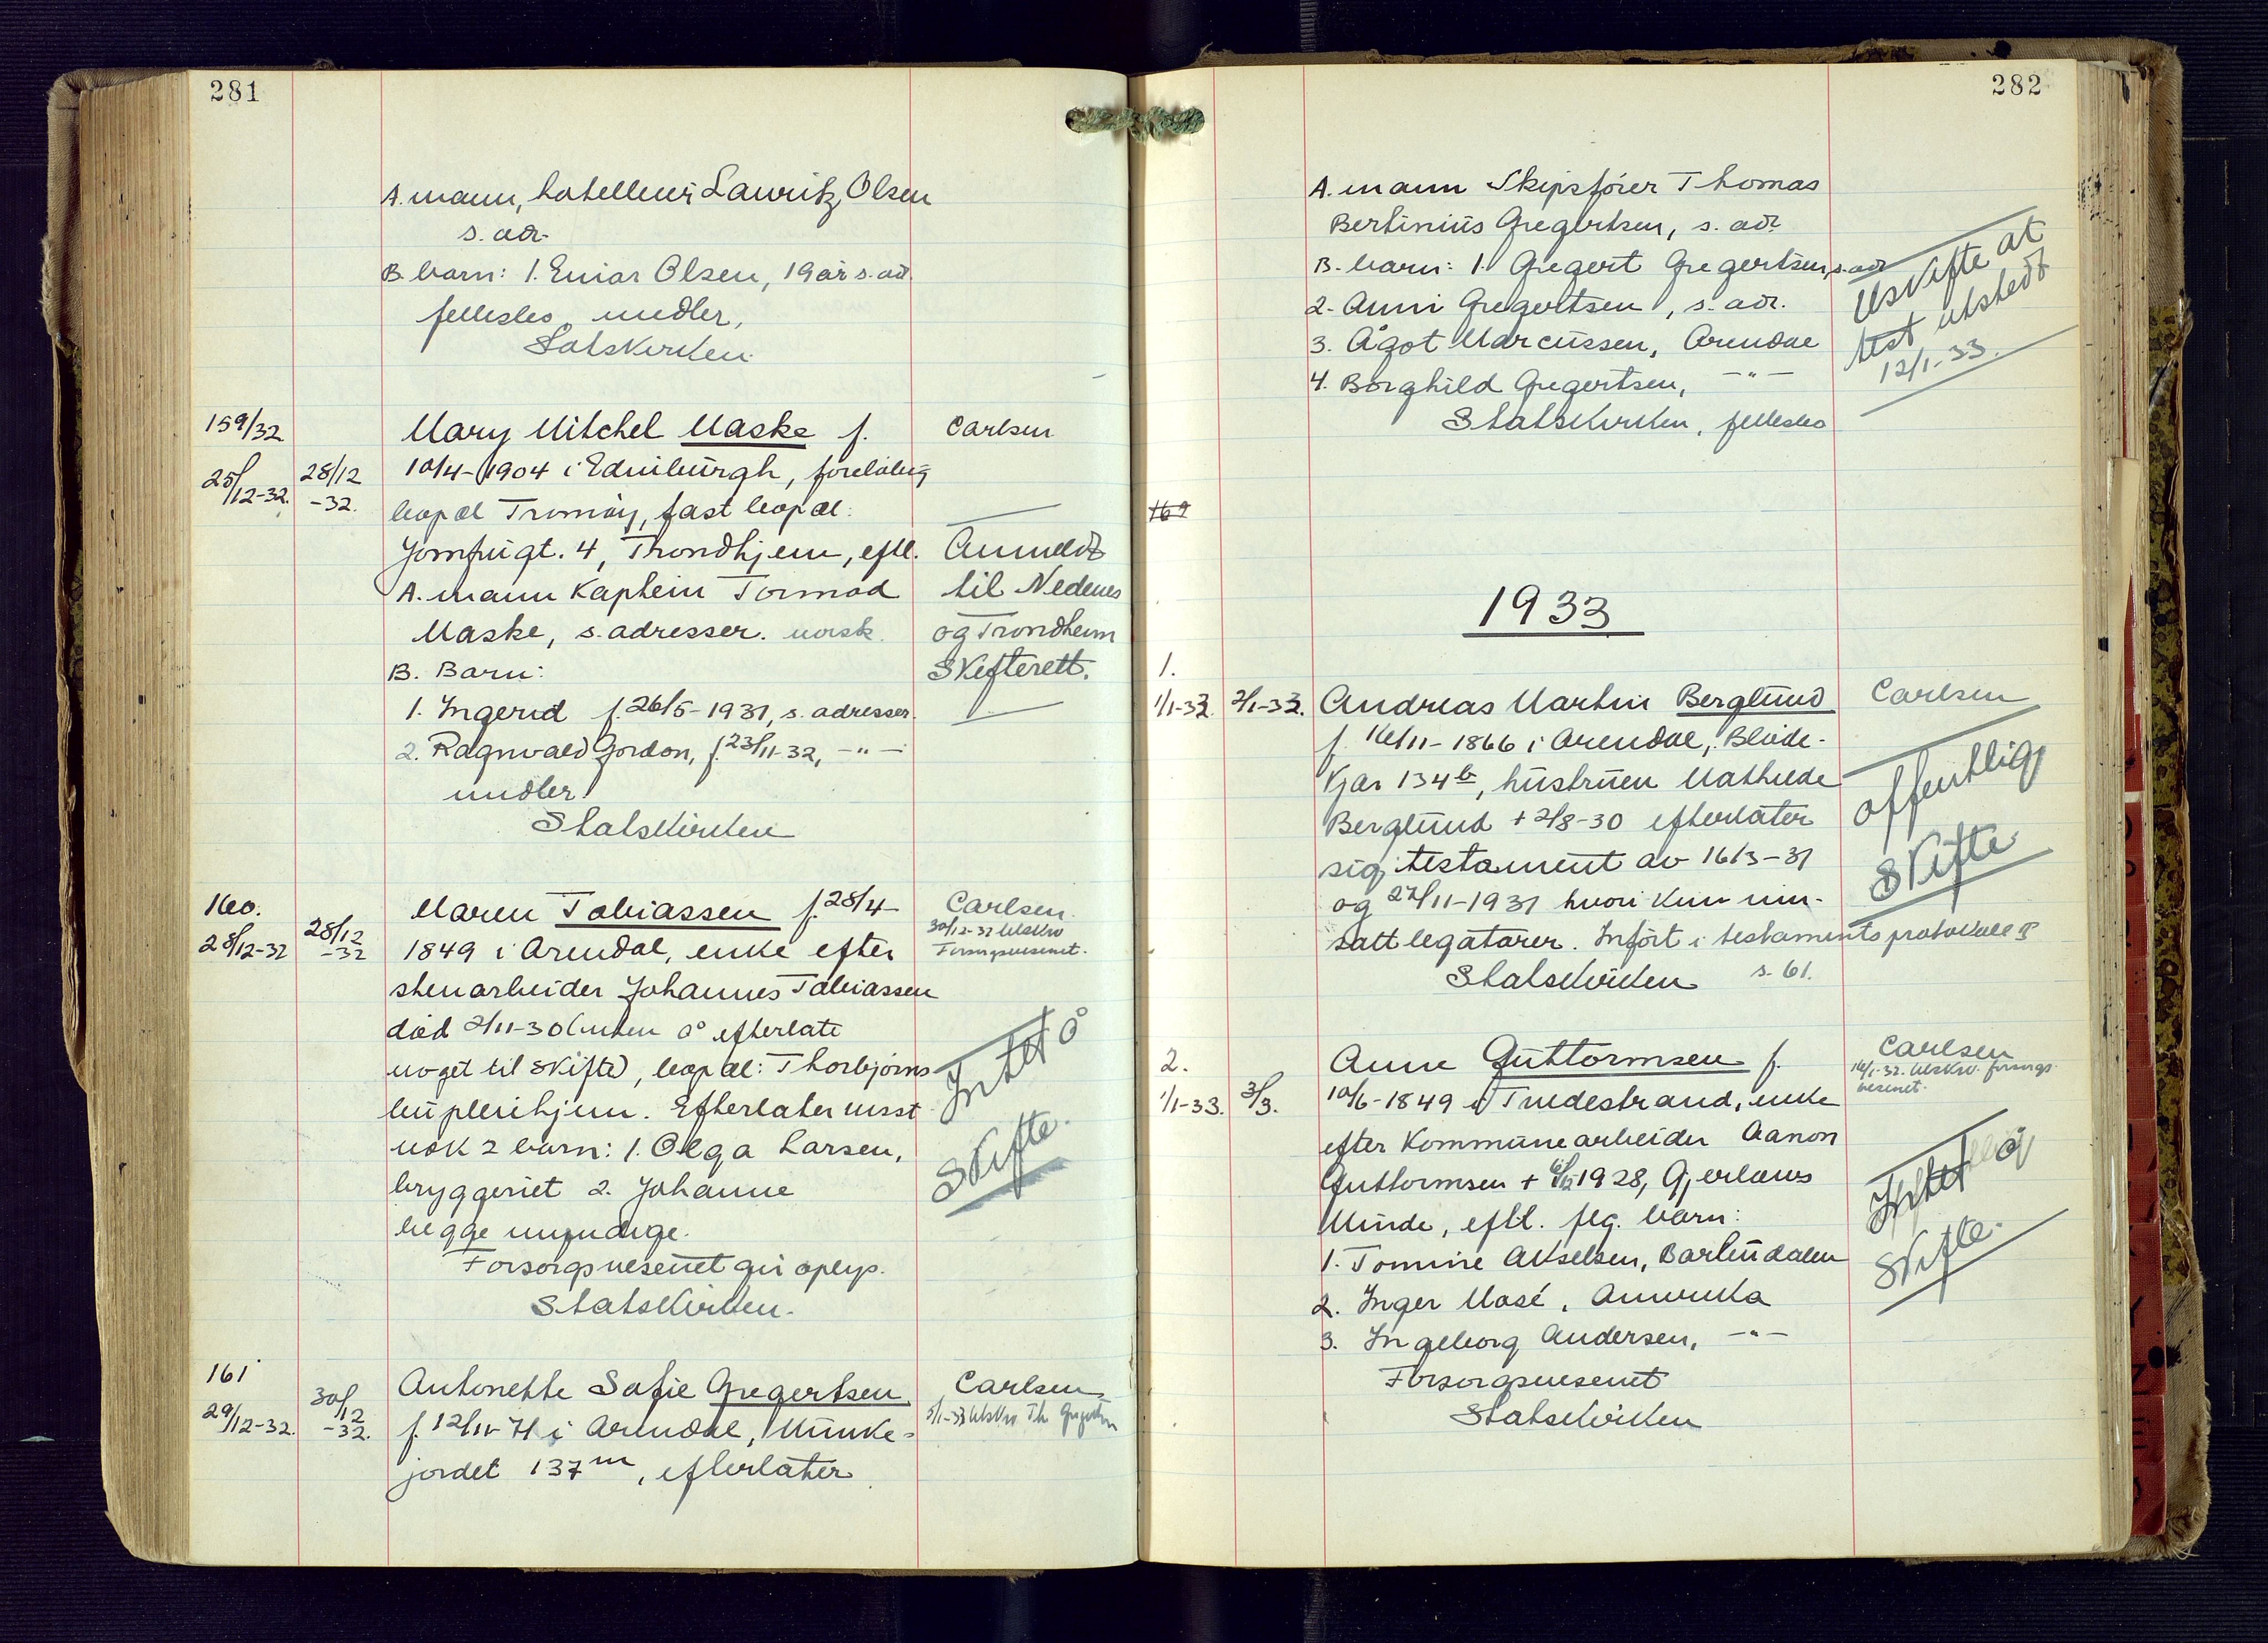 281
A. mann, hotelleier Lauritz Olsen
s. adr.
B. barn: 1. Einar Olsen, 19 år s. adr.
felleslev. undler,
Statskirken
159/32
25/12-32.
28/12
-32.
Mary Mitchel Maske f.
Carlsen
10/4-1904 i Edinburgh, foreløbig
bopæl Tromøy, fast bopæl:
Jomfrugt. 4, Trondhjem, eftl.
A. mann Kaptein Tormod
Maske, s. adresser. norsk.
B. Barn:
1. Ingerid f. 26/5-1931, s. adresser.
2. Ragnvald Gordon, f. 23/11-32, -"-
undler.
Statskirken
Anmeldt
til Nedenes
og Trondheim
Skifterett.
160.
28/12-32
28/12
-32
Maren Tobiassen f. 28/4-
1849 i Arendal, enke efter
stenarbeider Johannes Tobiassen
død 2/11-30 (uten å efterlate
noget til skifte), bopæl: Thorbjørns
bu pleiehjem. Efterlater visst
nok 2 barn: 1. Olga Larsen,
bryggeriet 2. Johanne
begge umyndige.
Forsorgsvesenet gir oplys.
Statskirken.
Carlsen
30/12-32 utskr
Forsorgsvesenet.
Intet å
Skifte.
161
29/12-32.
30/12
-32.
Antonette Sofie Gregertsen
f. 12/11-71 i Arendal, Munke-
jordet 137 m, efterlater
Carlsen
5/1-33 utskr. Th Gregertsen
282
A. mann Skipsfører Thomas
Bertinius Gregertsen, s. adr.
B. barn: 1. Gregert Gregertsen, s. adr
2. Anni Gregertsen, s. adr.
3. Ågot Marcussen, Arendal
4. Borghild Gregertsen, -"-
Statskirken, felleslev
Uskifte at
test utstedt
12/1-33.
162
1933
1.
1/1-33.
2/1-33.
Andreas Martin Berglund
f. 16/11-1866 i Arendal, Bløde-
kjær 134 b, hustruen Mathilde
Berglund + 2/8-30 efterlater
sig testament av 16/3-31
og 27/11-1931 hvori kun inn-
satt legatarer. Inført i testamentsprotokoll II
Statskirken s. 61.
Carlsen
offentlig
Skifte
2.
1/1-33.
3/3.
Anne Guttormsen f.
10/6-1849 i Tvedestrand, enke
efter Kommunearbeider Aanon
Guttormsen + 6/12 1928, Gjerløws
Minde, eftl. flg. barn:
1. Tomine Akselsen, Barbudalen
2. Inger Mosé, Amerika
3. Ingeborg Andersen, -"-
Forsorgsvesenet
Statskirken
Carlsen
16/1-32. utskr. forsorgs-
vesenet.
Intet å
Skifte.